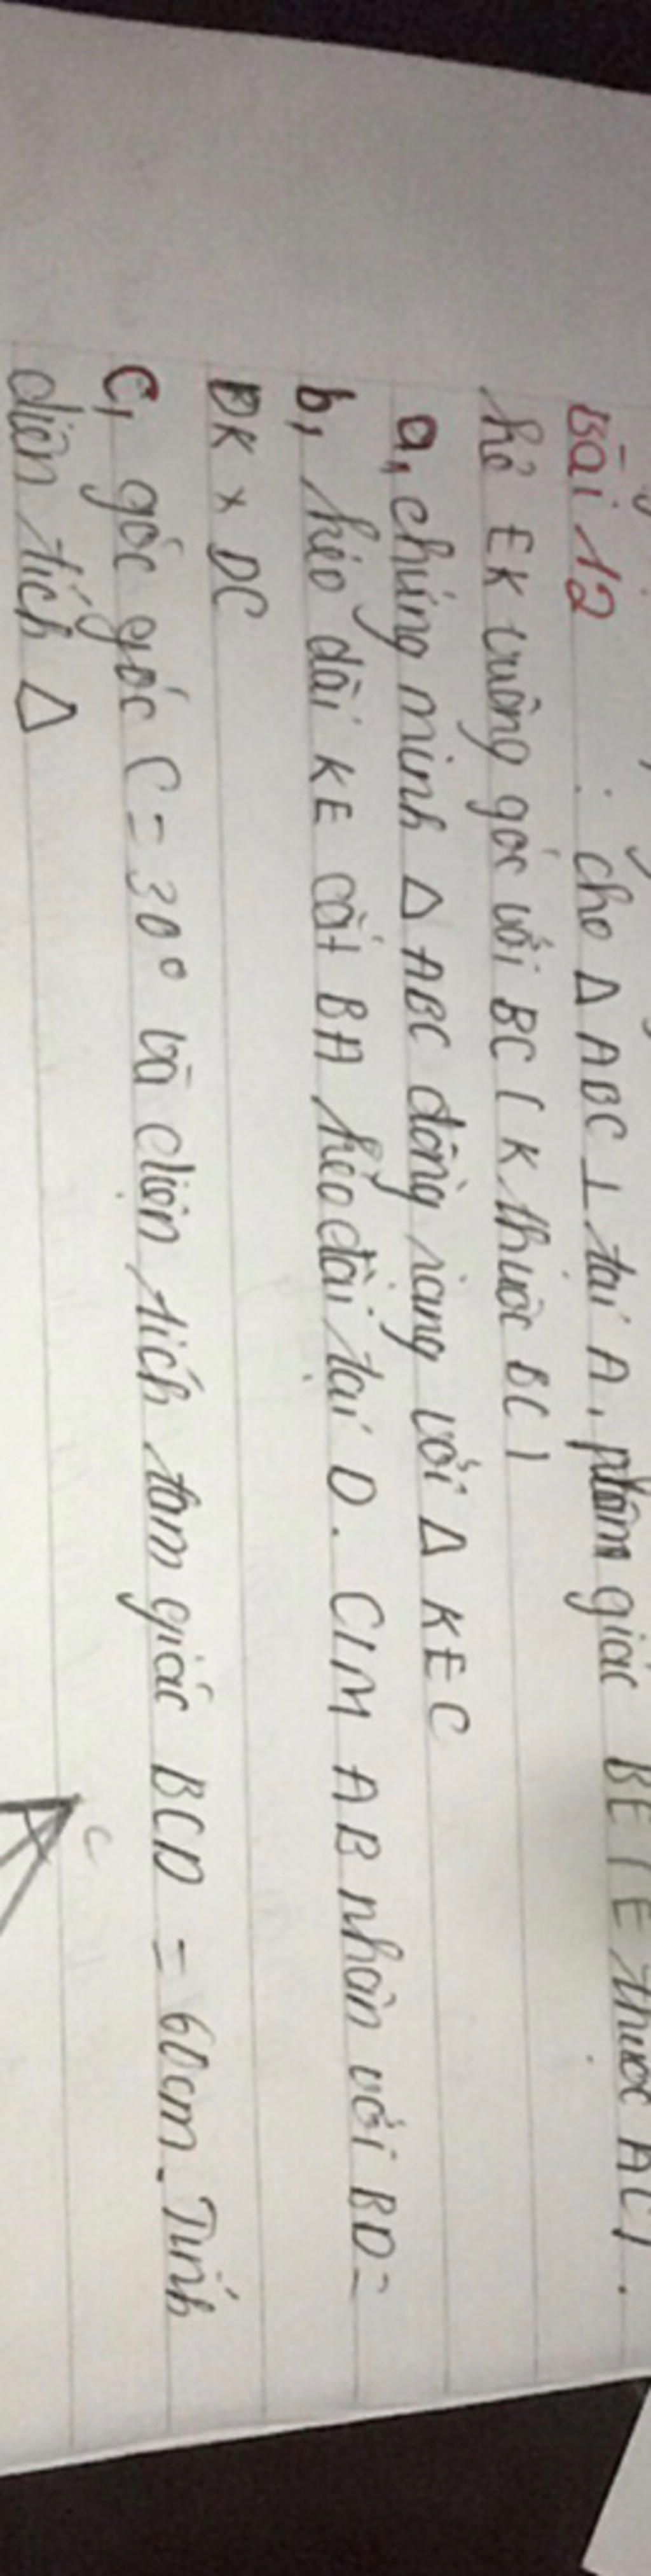 Bài 12 : cho Δ ABC ⊥ tại A, phân giác BE (E thuộc AC).
kẻ EK vuông góc với BC (K thuộc BC)
a, chứng minh Δ ABC đồng dạng với Δ KEC
b, kéo dài KE cắt BA kéo dài tại D. C/M AB nhân với BD =
DK × DC
C, góc góc C = 30° và diện tích tam giác BCD = 60cm. Tính
diện tích Δ
C